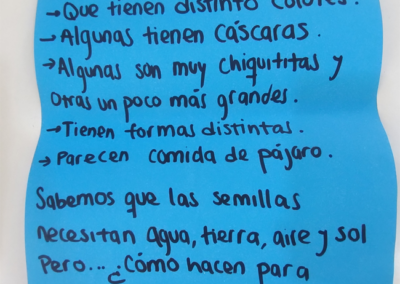 →Que tienen distinto colores.
→Algunas tienen cáscaras.
→Algunas son muy chiquititas y
otras un poco más grandes.
→Tienen formas distintas.
→Parecen comida de pájaro.
Sabemos que las semillas
necesitan agua, tierra, aire y sol
Pero... ¿Cómo hacen para